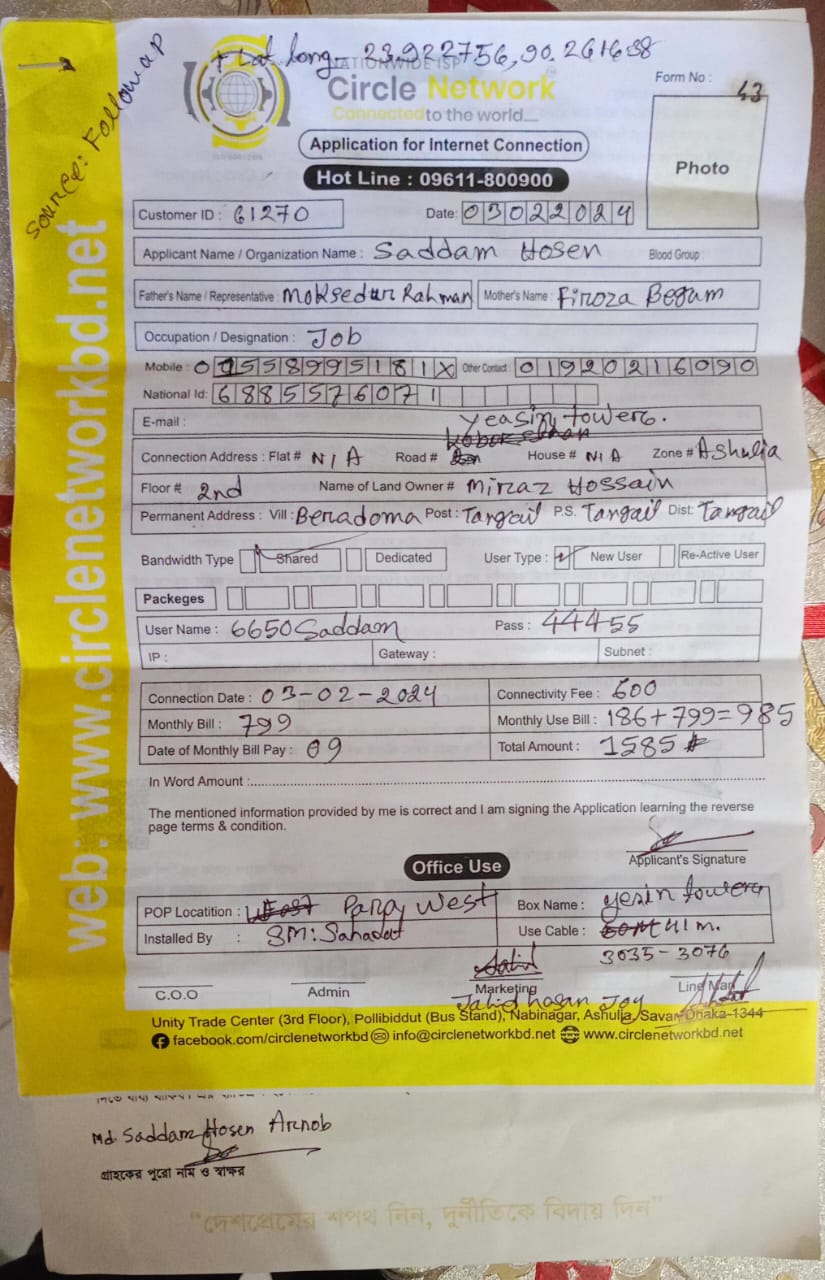 + Lat long - 23.922756, 90.261638
Source: Followap
NATIONWIDE ISP
Circle Network
Connected to the world...
Form No : 43
Application for Internet Connection
Photo
Hot Line : 09611-800900
Customer ID : 61270 Date: 03022024
Applicant Name / Organization Name : Saddam Hosen Blood Group :
Father's Name / Representative : Moksedur Rahman Mother's Name : Firoza Begam
Occupation / Designation : Job
Mobile : 01558995181X Other Contact : 01920216090
National Id: 6885576071
E-mail :
Yeasin towers.
Connection Address : Flat # N/A Road # House # N/A Zone # Ashulia
Floor # 2nd Name of Land Owner # Miraz Hossain
Permanent Address : Vill : Beradoma Post : Tangail P.S. Tangail Dist: Tangail
Bandwidth Type Shared Dedicated User Type : New User Re-Active User
Packeges
User Name : 6650Saddam Pass : 44455
IP : Gateway : Subnet :
Connection Date : 03-02-2024 Connectivity Fee : 600
Monthly Bill : 799 Monthly Use Bill : 186+799=985
Date of Monthly Bill Pay : 09 Total Amount : 1585
In Word Amount :
The mentioned information provided by me is correct and I am signing the Application learning the reverse
page terms & condition.
Applicant's Signature
Office Use
POP Locatition : Para West Box Name : yesin towers
Installed By : SM: Sahadat Use Cable : 41 m.
3035-3076
C.O.O Admin Marketing Line Man
Jahid hasan Joy
Unity Trade Center (3rd Floor), Pollibiddut (Bus Stand), Nabinagar, Ashulia, Savar Dhaka-1344
facebook.com/circlenetworkbd info@circlenetworkbd.net www.circlenetworkbd.net
web: www.circlenetworkbd.net
Md. Saddam Hosen Arnob
গ্রাহকের পুরো নাম ও স্বাক্ষর
“দেশপ্রেমের শপথ নিন, দুর্নীতিকে বিদায় দিন”